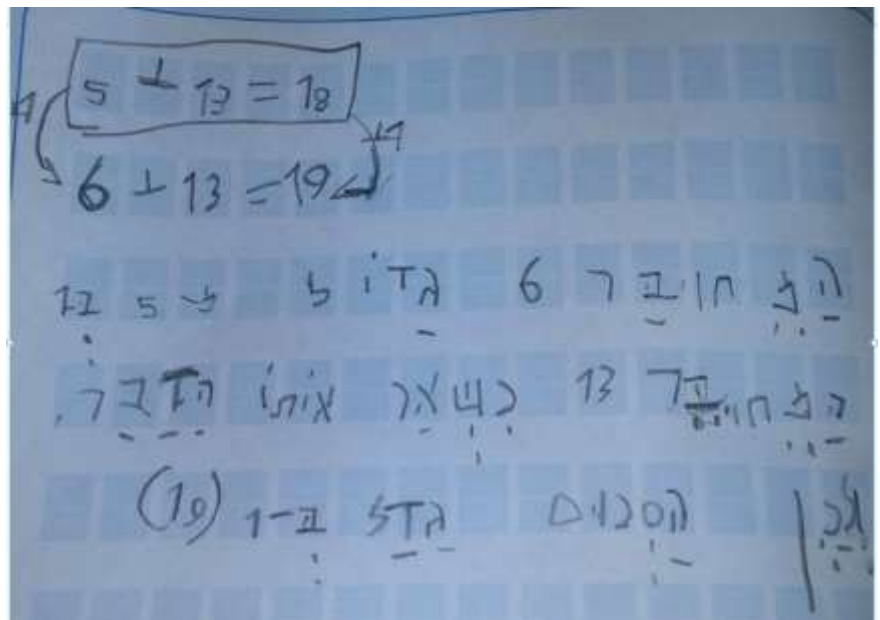 5 + 13 = 18
+1
6 + 13 = 19
המחובר 6 גדול מ 5 ב1
המחובר 13 נשאר אותו הדבר.
לכן הסכום גדל ב-1 (19)